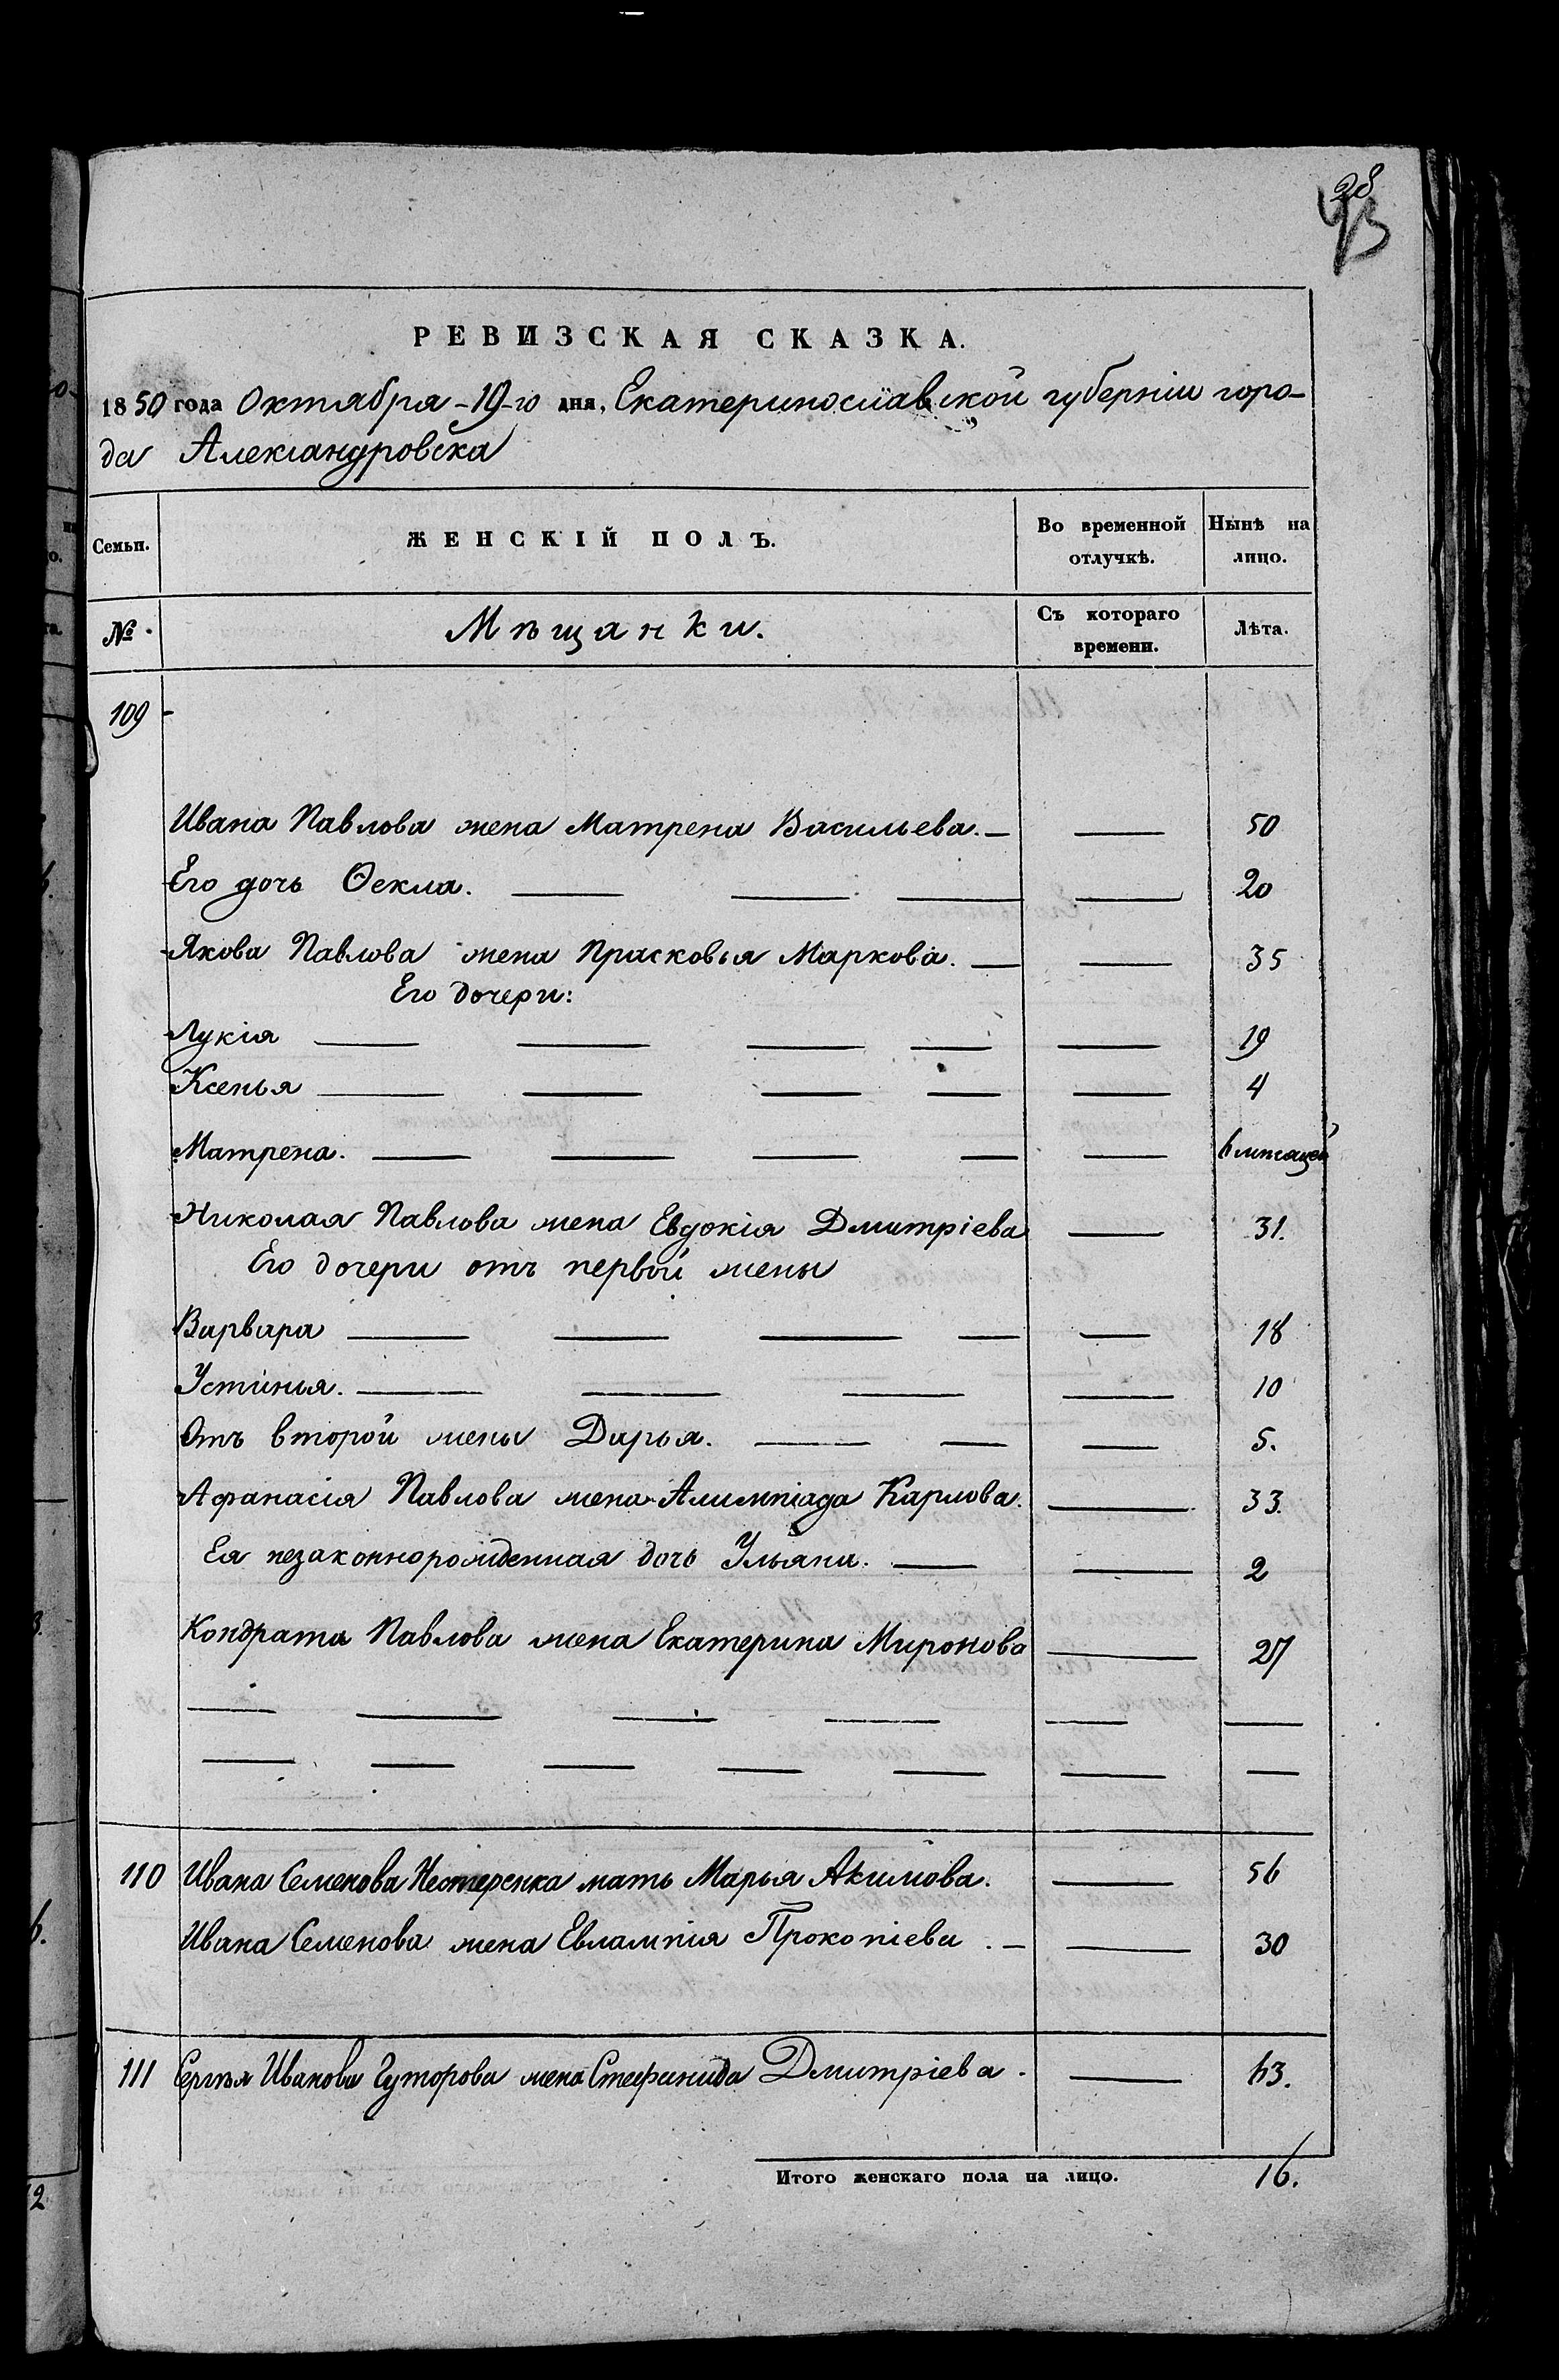 28
43
РЕВИЗСКАЯ СКАЗКА.
1850 года Октября -19-го дня, Екатеринославской губерніи горо-
да Александровска
Семьи.
ЖЕНСКІЙ ПОЛЪ.
Во временной отлучкѣ.
Нынѣ на лицо.
№
Мѣщанки.
Съ котораго времени.
Лѣта.
109
Ивана Павлова жена Матрена Васильева. — — 50
Его дочь Ѳекла. — — — — 20
Якова Павлова жена Прасковья Маркова. — — 35
Его дочери:
Лукія — — — — — 19
Ксенья — — — — — 4
Матрена. — — — — — 6 мѣсяцей
Николая Павлова жена Евдокія Дмитріева — 31.
Его дочери отъ первой жены
Варвара — — — — — 18
Устинья. — — — — 10
Отъ второй жены Дарья. — — — 5.
Афанасія Павлова жена Алимпіада Карпова. — 33.
Ея незаконнорожденная дочь Ульяна. — — 2
Кондрата Павлова жена Екатерина Миронова — 27
— — — — — —
— — — — — — —
110 Ивана Семенова Нестеренка мать Марья Акимова. — 56
Ивана Семенова жена Евлампія Прокопіева . — — 30
111 Сергѣя Иванова Гуторова жена Стефанида Дмитріева. — 63.
Итого женскаго пола на лицо. 16.